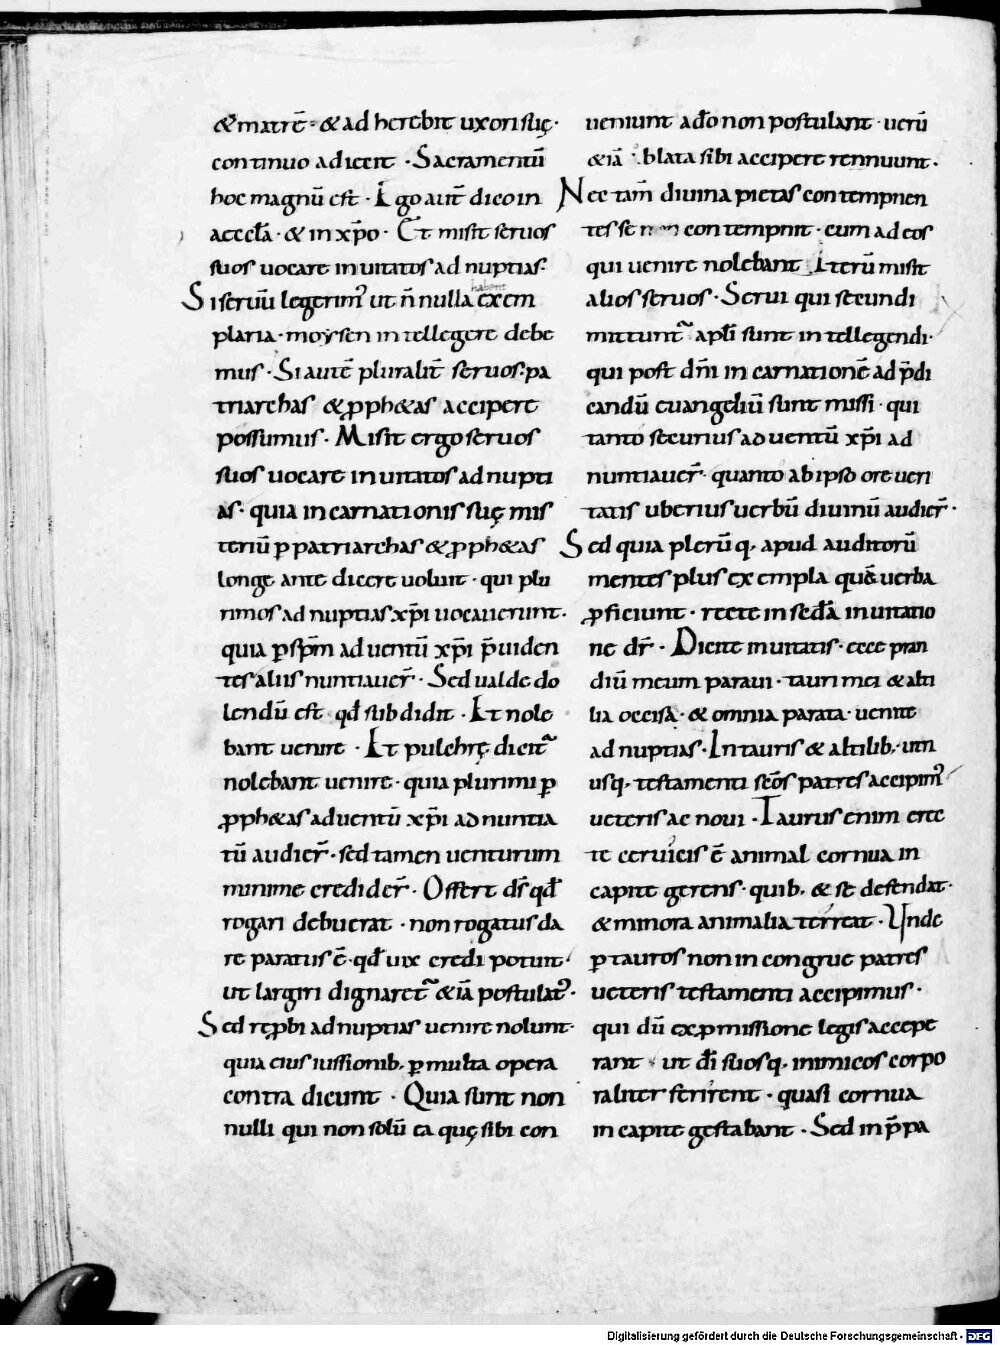 & matrē · & adherebit uxori suę ·
continuo adiecit · Sacramentū
hoc magnū est · Ego aut̄ dico in
aeccl̄a · & in xp̄o · Et misit seruos
suos uocare inuitatos ad nuptias ·
Si seruū legerim᾿ ut n̄nulla habent exem
plaria · moysen intellegere debe
mus · Si autē pluralit̄ seruos · pa
triarchas & ꝓph&as accipere
possumus · Misit ergo seruos
suos uocare inuitatos ad nupti
as · quia incarnationis suę mis
teriū ꝑ patriarchas & ꝓph&as
longe ante dicere uoluit · qui plu
rimos ad nuptias xp̄i uocauerunt ·
quia ꝑ sp̄m aduentū xp̄i p̄uiden
tes aliis nuntiauer̄ · Sed ualde do
lendū est qd̄ subdidit · Et nole
bant uenire · Et pulchrę dicit᷑
nolebant uenire · quia plurimi ꝑ
ꝓph&as aduentū xp̄i adnuntia
tū audier̄ · sed tamen uenturum
minime credider̄ · Offert d̄s qd̄
rogari debuerat · non rogatus da
re paratus ē · qd̄ uix credi potuit
ut largiri dignaret᷑ & iā postulat᷑ ·
Sed ręꝓbi ad nuptias uenire nolunt ·
quia eius iussionib; ꝑ multa opera
contradicunt · Quia sunt non
nulli qui non solū ea quę sibi con
ueniunt a dō non postulant · uerū
& iā blata sibi accipere rennuunt ·
Nec tam̄ diuina pietas contempnen
tes se contempnit · cum ad eos
qui uenire nolebant Iterū misit
alios seruos · Serui qui secundi
mittunt᷑ apl̄i sunt intellegendi ·
qui post dn̄i incarnationē ad p̄di
candū euangeliū sunt missi · qui
tanto securius aduentū xp̄i ad
nuntiauer̄ · quanto ab ipso ore ueri
tatis uberius uerbū diuinū audier̄ ·
Sed quia plerūq; apud auditorū
mentes plus exempla quā uerba
ꝓficiunt · recte in sed̄a inuitatio
ne dr̄ · Dicite inuitatis · ecce pran
diū meum paraui · tauri mei & alti
lia occisa · & omnia parata · uenite
ad nuptias · In tauris & altilib; utri
usq; testamenti sc̄os patres accipim᾿
ueteris ac noui · Taurus enim erec
te ceruicis ē animal cornua in
capite gerens · quib; & se defendat ·
& minora animalia terreat · Unde
ꝑ tauros non incongrue patres
ueteris testamenti accipimus ·
qui dū ex ꝑmissione legis accepe
rant ut d̄i suosq; inimicos corpo
raliter ferirent · quasi cornua
in capite gestabant · Sed in p̄pa
Digitalisierung gefördert durch die Deutsche Forschungsgemeinschaft - DFG